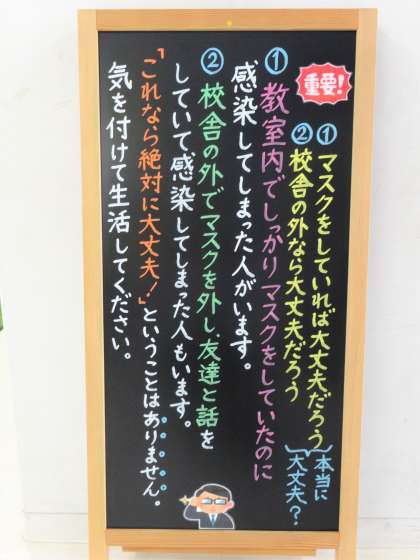 重要!
①マスクをしていれば大丈夫だろう
②校舎の外なら大丈夫だろう
本当に
大丈夫?
①教室内でしっかりマスクをしていたのに
感染してしまった人がいます。
②校舎の外でマスクを外し、友達と話を
していて感染してしまった人もいます。
「これなら絶対に大丈夫!」ということはありません。
気を付けて生活してください。